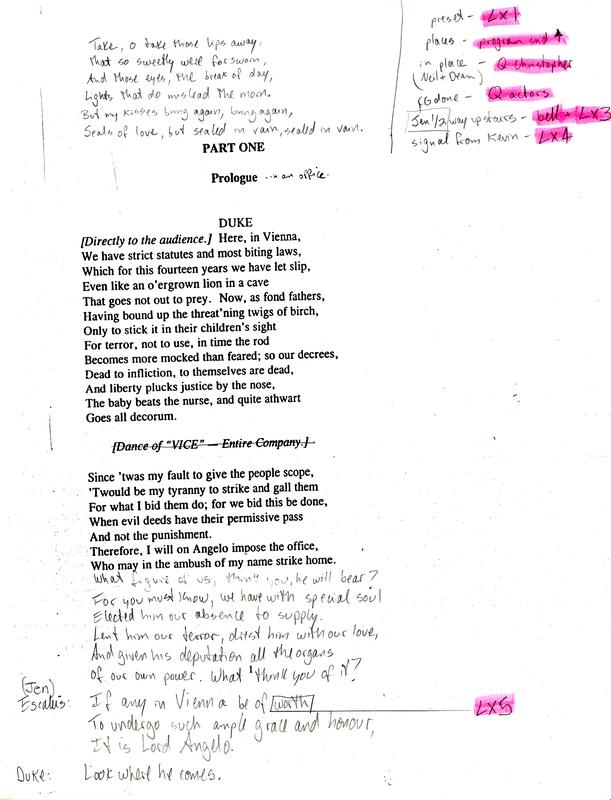 Take, o take those lips away,
that so sweetly were forsworn,
And those eyes, the break of day,
Lights that do mislead the morn.
But my kisses bring again, bring again,
Seals of love, but sealed in vain, sealed in vain.
preset - LX1
places - program snd ↑
in place - Q Christopher
(Neil + Dean)
FG done - Q actors
Jen 1/2 way upstairs - bell + LX3
signal from Kevin - LX4
PART ONE
Prologue ...in an office.
DUKE
[Directly to the audience.] Here, in Vienna,
We have strict statutes and most biting laws,
Which for this fourteen years we have let slip,
Even like an o'ergrown lion in a cave
That goes not out to prey. Now, as fond fathers,
Having bound up the threat'ning twigs of birch,
Only to stick it in their children's sight
For terror, not to use, in time the rod
Becomes more mocked than feared; so our decrees,
Dead to infliction, to themselves are dead,
And liberty plucks justice by the nose,
The baby beats the nurse, and quite athwart
Goes all decorum.
[Dance of "VICE" — Entire Company.]
Since 'twas my fault to give the people scope,
'Twould be my tyranny to strike and gall them
For what I bid them do; for we bid this be done,
When evil deeds have their permissive pass
And not the punishment.
Therefore, I will on Angelo impose the office,
Who may in the ambush of my name strike home.
What figure of us, think you, he will bear?
For you must know, we have with special soul
Elected him our absence to supply.
Lent him our terror, drest him with our love,
And given his deputation all the organs
of our own power. What think you of it?
(Jen)
Escalus: If any in Vienna be of worth LX5
To undergo such ample grace and honour,
It is Lord Angelo.
Duke: Look where he comes.